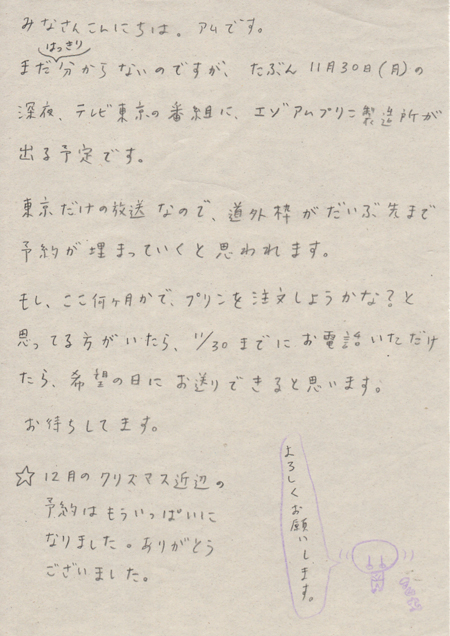 みなさんこんにちは。アムです。
はっきり
まだ分からないのですが、たぶん11月30日(月)の
深夜、テレビ東京の番組に、エゾアムプリン製造所が
出る予定です。
東京だけの放送なので、道外枠がだいぶ先まで
予約が埋まっていくと思われます。
もし、ここ何ヶ月かで、プリンを注文しようかな?と
思ってる方がいたら、11/30までにお電話いただけ
たら、希望の日にお送りできると思います。
お待ちしてます。
☆12月のクリスマス近辺の
予約はもういっぱいに
なりました。ありがとう
ございました。
よろしくお願いします。